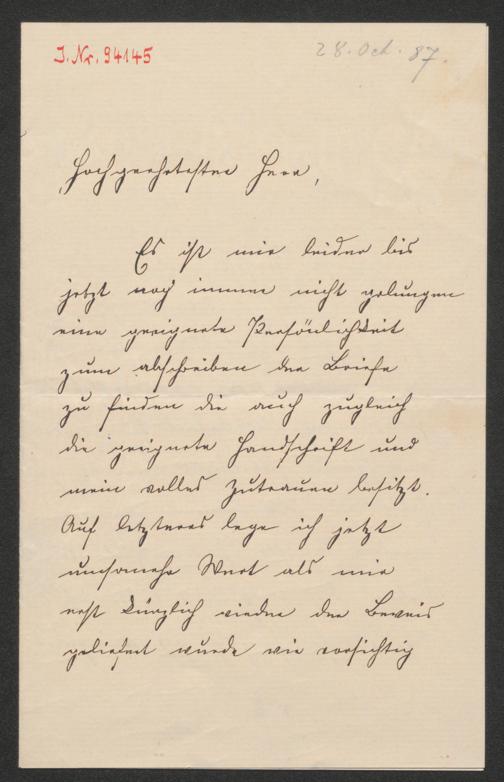 J. Nr. 94145
28. Oct. 87.
Hochgeehrtester Herr,
Es ist mir leider bis
jetzt noch immer nicht gelungen
eine geeignete Persönlichkeit
zum abschreiben der Briefe
zu finden die auch zugleich
die geeignete Handschrift und
mein volles Zutrauen besitzt.
Auf letzteres lege ich jetzt
umsomehr Wert als mir
erst kürzlich wieder der Beweis
geliefert wurde wie vorsichtig